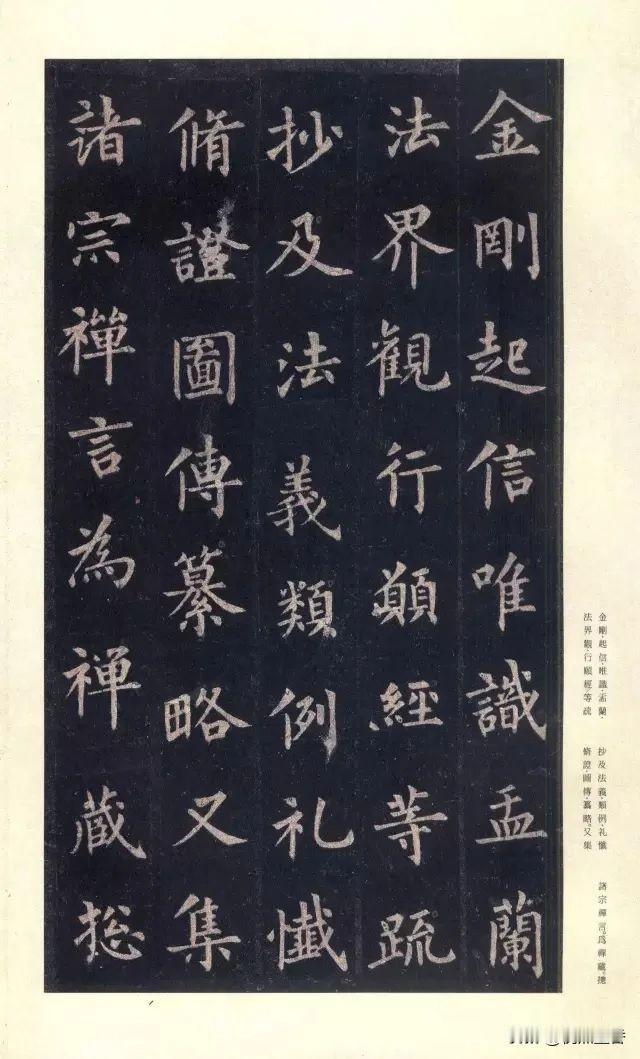 金剛起信唯識盂蘭
法界觀行願經等疏
抄及法義類例礼懺
脩證圖傳纂略又集
諸宗禪言為禅蔵捴
金剛·起信·唯識·盂蘭·
法界觀·行願經等疏
抄及法義·類例·礼懺
脩證·圖傳·纂略。又集
諸宗禪言。爲禪藏。摠